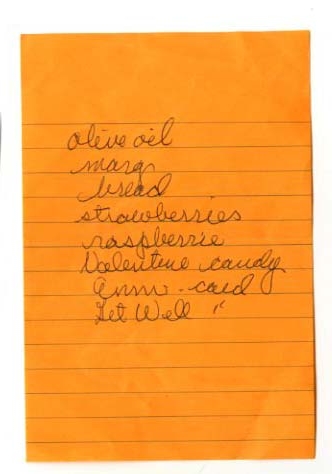 olive oil
marg
bread
strawberries
raspberrie
Valentine candy
Ann - card
Get Well "